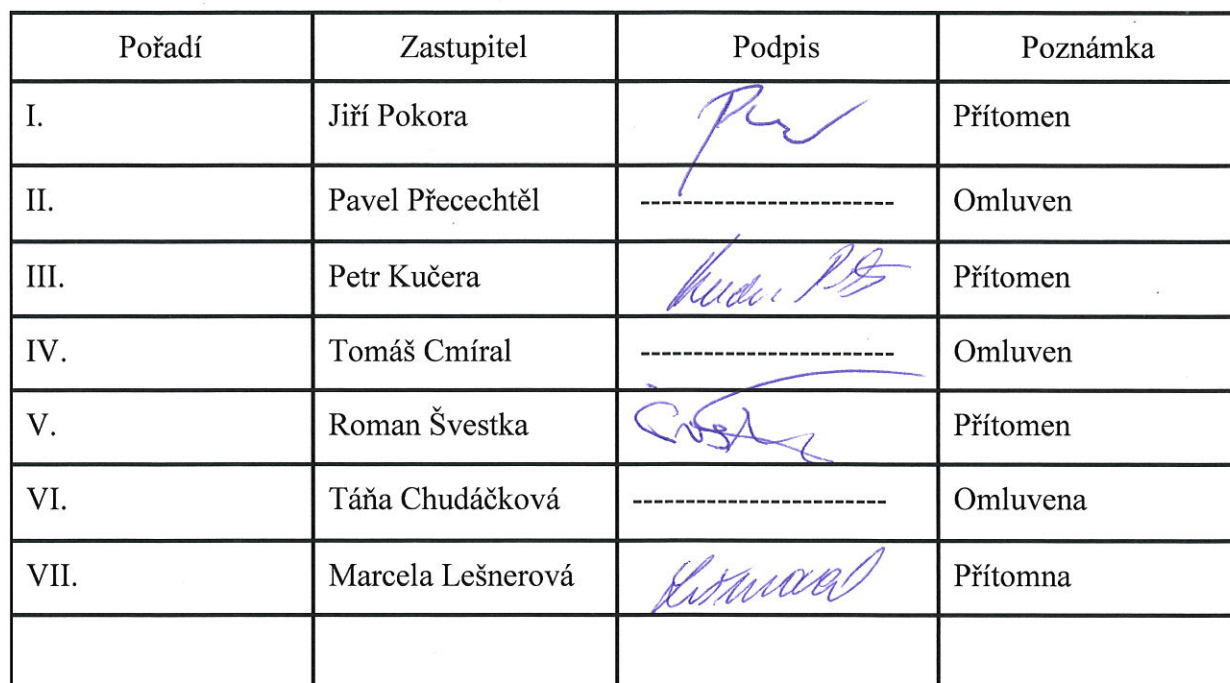 Pořadí Zastupitel Podpis Poznámka
I. Jiří Pokora Přítomen
II. Pavel Přecechtěl ------------------------ Omluven
III. Petr Kučera Přítomen
IV. Tomáš Cmíral ------------------------ Omluven
V. Roman Švestka Přítomen
VI. Táňa Chudáčková ------------------------ Omluvena
VII. Marcela Lešnerová Přítomna